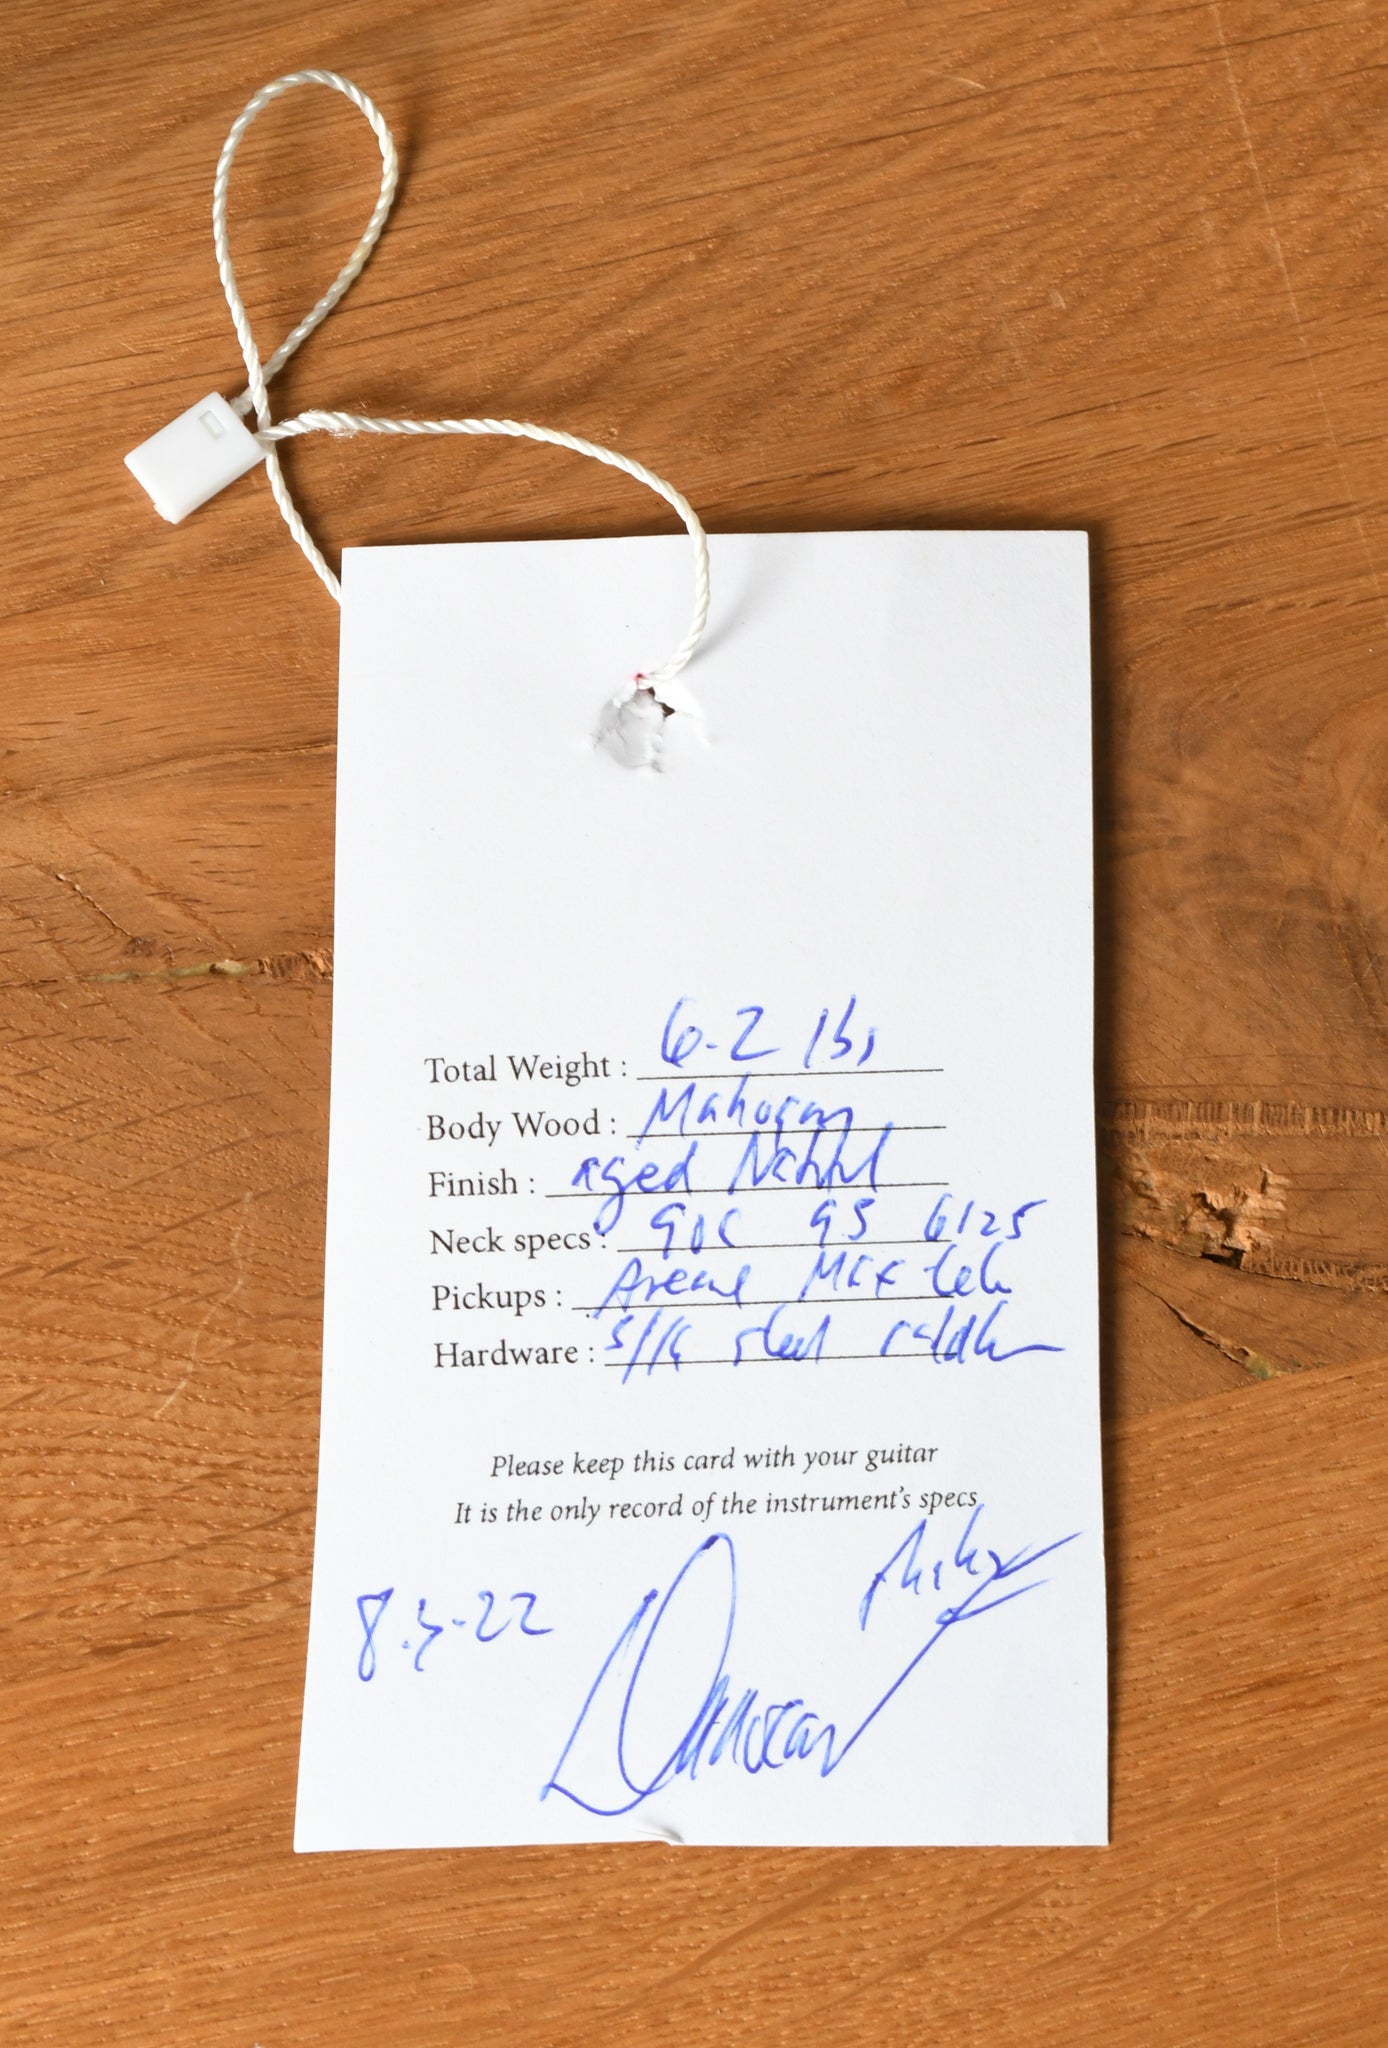 Total Weight : 6.2 lbs
Body Wood : Mahogany
Finish : aged Natural
Neck specs : 95 6125
Pickups :
Hardware : 5/16 steel saddles
Please keep this card with your guitar
It is the only record of the instrument's specs
8.3.22